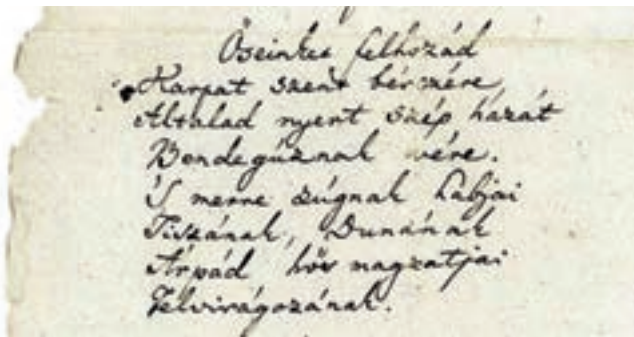 Őseinket felhozád
Karpat szent bérczére,
Által​ad nyert szép hazát
Bendegúznak vére.
'S merre zúgnak habjai
Tiszának, Dunának
Árpád hős magzatjai
Felvirágozának.